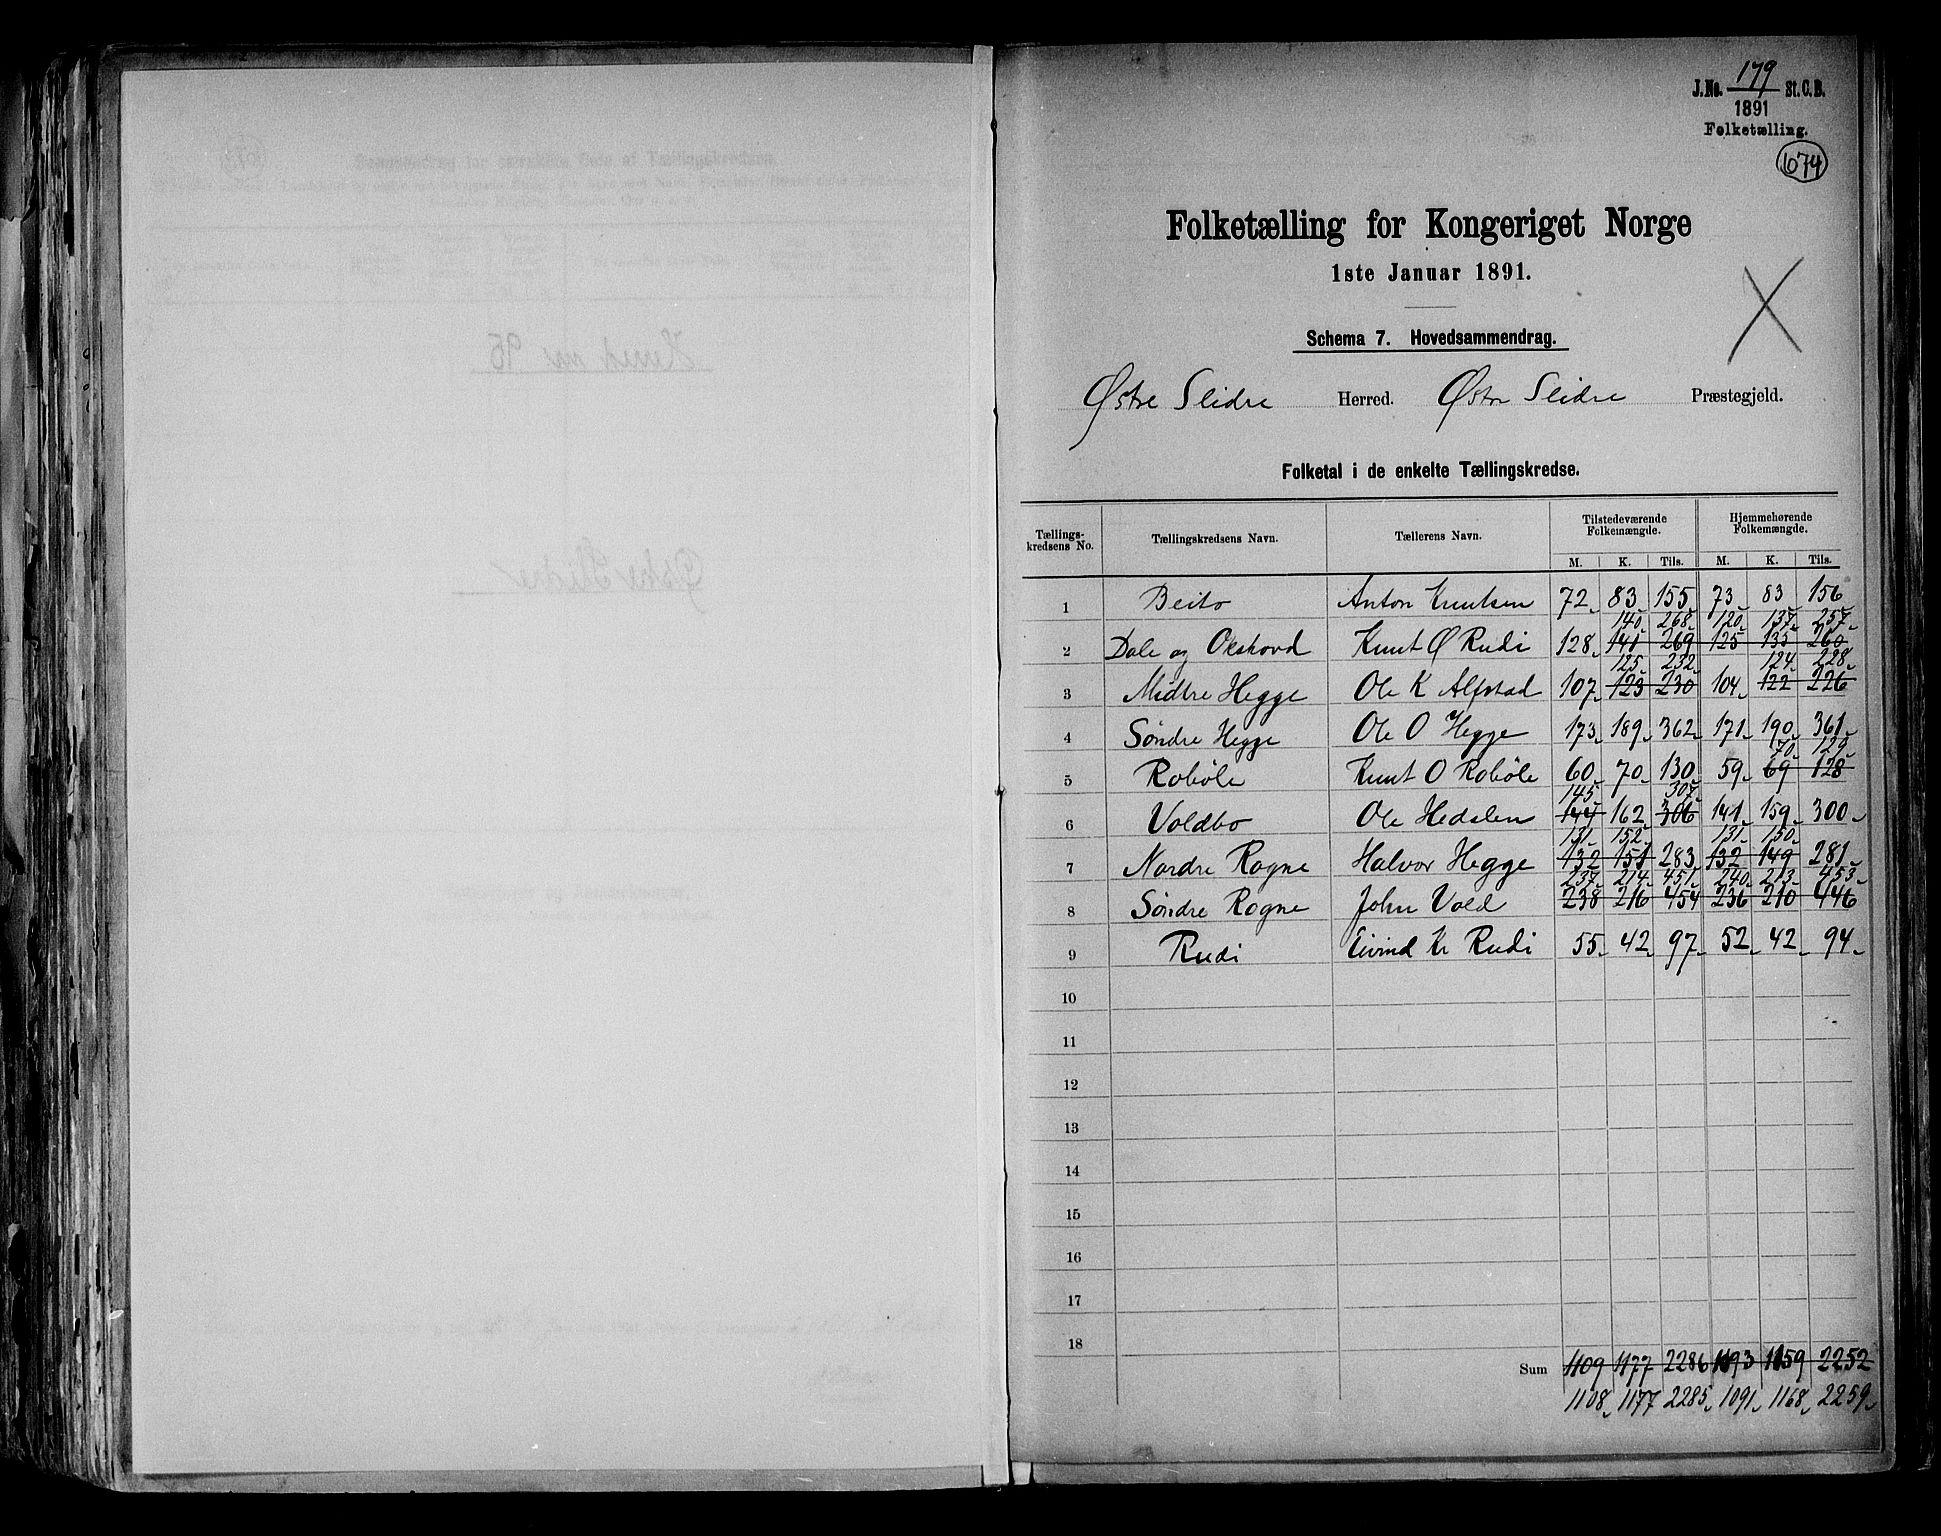 J.No. 179 St.C.B.
1891
Folketælling.
674
Folketælling for Kongeriget Norge
1ste Januar 1891.
Schema 7. Hovedsammendrag.
Østre Slidre Herred. Østre Slidre Præstegjeld.
Folketal i de enkelte Tællingskredse.
Tællings-kredsens No. Tællingskredsens Navn. Tællerens Navn. Tilstedeværende Folkemængde. Hjemmehørende Folkemængde.
M. K. Tils. M. K. Tils.
1 Beito Anton Knutsen 72 83 155 73 83 156
140 268 120 137 257
2 Dale og Okshovd Knut Ø Rudi 128 141 269 125 135 260
125 232 124 228
3 Midtre Hegge Ole K Alfstad 107 123 230 104 122 226
4 Søndre Hegge Ole O Hegge 173 189 362 171 190 361
70 129
5 Robøle Knut O Robøle 60 70 130 59 69 128
145 307
6 Voldbo Ole Hedalen 144 162 306 141 159 300
131 152 131 150
7 Nordre Rogne Halvor Hegge 132 151 283 132 149 281
237 214 451 240 213 453
8 Søndre Rogne John Vold 238 216 454 236 210 446
9 Rudi Eivind K Rudi 55 42 97 52 42 94
10
11
12
13
14
15
16
17
18
Sum 1109 1177 2286 1093 1159 2252
1108 1177 2285 1091 1168 2259